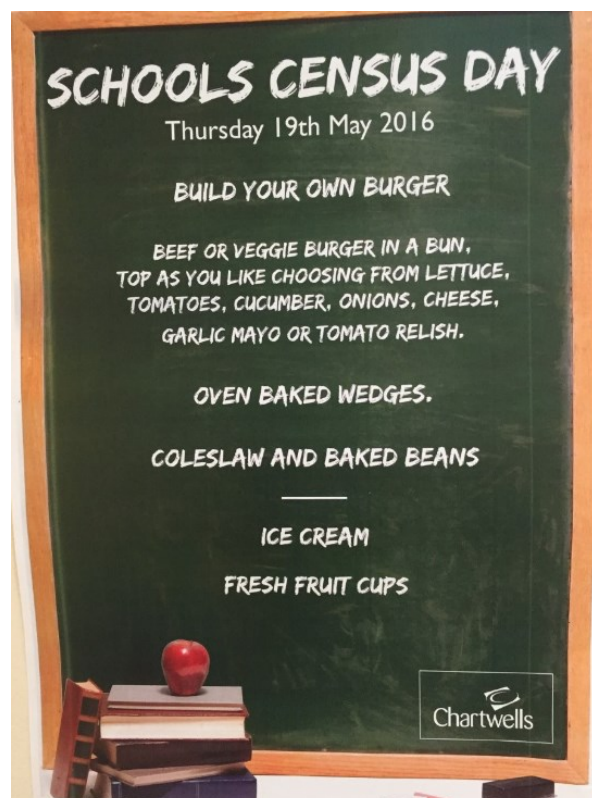 SCHOOLS CENSUS DAY
Thursday 19th May 2016
BUILD YOUR OWN BURGER
BEEF OR VEGGIE BURGER IN A BUN,
TOP AS YOU LIKE CHOOSING FROM LETTUCE,
TOMATOES, CUCUMBER, ONIONS, CHEESE,
GARLIC MAYO OR TOMATO RELISH.
OVEN BAKED WEDGES.
COLESLAW AND BAKED BEANS
ICE CREAM
FRESH FRUIT CUPS
Chartwells